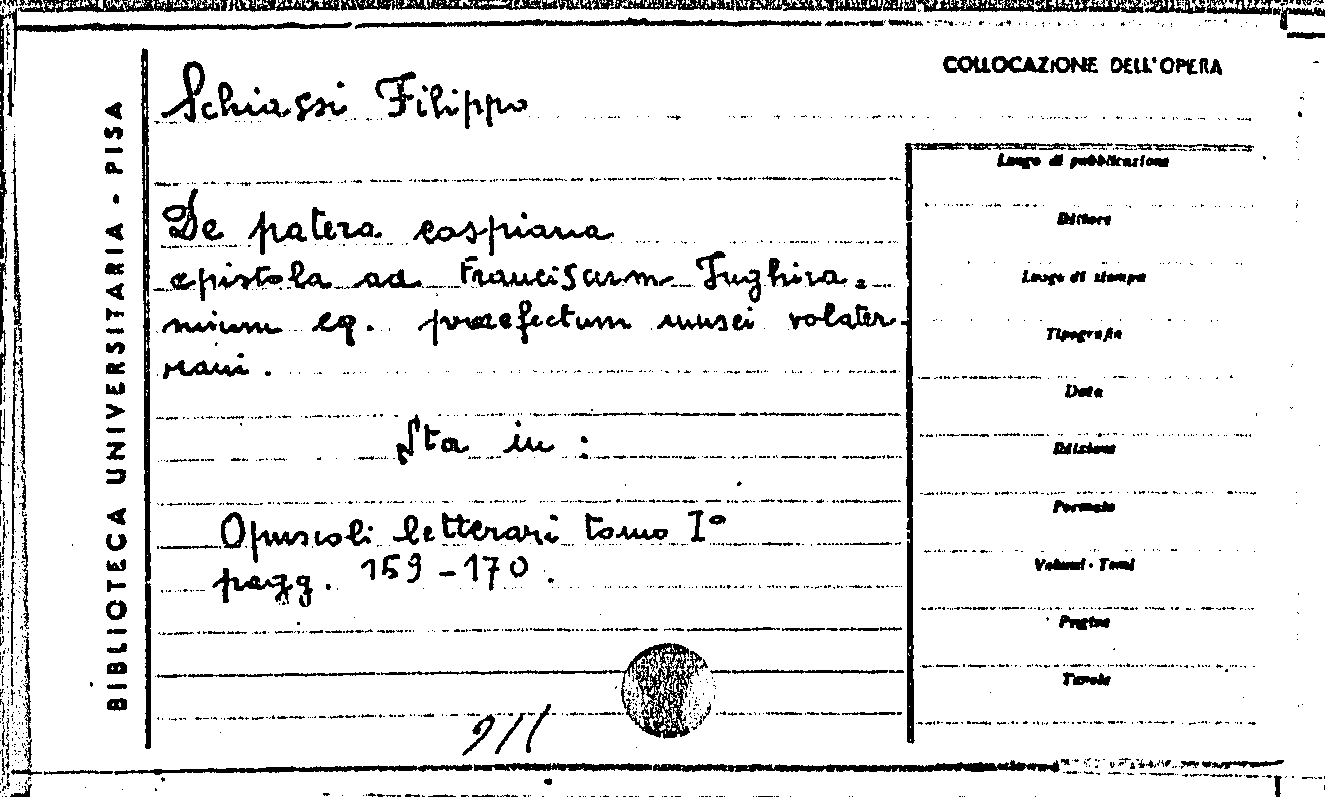 COLLOCAZIONE DELL'OPERA
Schiassi Filippo
De patera cospiana
epistola ad Franciscum Inghira-
mium eq. praefectum musei volater-
rani.
Sta in :
Opuscoli letterari tomo I°
pagg. 159-170.
911
BIBLIOTECA UNIVERSITARIA - PISA
Luogo di pubblicazione
Editore
Luogo di stampa
Tipografia
Data
Edizione
Formato
Volumi - Tomi
Pagine
Tavole